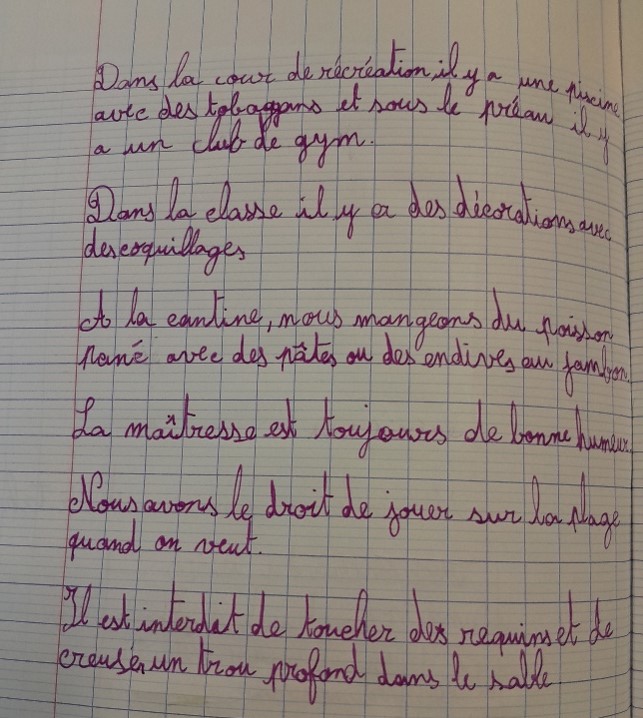 Dans la cour de récréation, il y a une piscine
avec des tobaggans et sous le préau il y
a un club de gym.
Dans la classe il y a des décorations avec
des coquillages
A la cantine, nous mangeons du poisson
pané avec des pâtes ou des endives au jambon.
La maîtresse est toujours de bonne humeur.
Nous avons le droit de jouer sur la plage
quand on veut.
Il est interdit de toucher des requins et de
creuser un trou profond dans le sable.